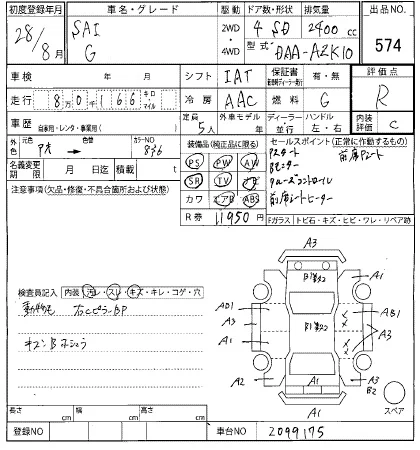 初度登録年月 車名・グレード 駆動 ドア数・形状 排気量 出品NO.
28/8月 SAI G 2WD・4WD 4 SD 2400 cc 574
型式 DAA-AZK10
車検 年 月 シフト IAT 保証書 有・無 評価点
走行 8万0千166 キロ マイル 冷房 AAC 燃料 G R
車歴 自家用・レンタ・事業用( ) 定員 5人 外車モデル 年 ディーラー・並行 ハンドル 左・右 内装評価 C
外色 元色 カラーNO 836 装備品(純正品に限る) セールスポイント(正常に作動するもの)
名義変更期限 月 日迄 積載 t PS PW AW
注意事項(欠品・修復・不具合箇所および状態) SR TV ナビ クルーズコントロール
カワ エアB ABS 前席シートヒーター
R券 11950円 Fガラス トビ石・キズ・ヒビ・ワレ・リペア跡
A3
A1 A1
検査員記入 内装 汚レ・スレ・キズ・キレ・コゲ・穴
AD1 AB1
右CピラーBP A3
A1 A3
A2 A3 B2
A1 A1 スペア
長さ cm 幅 cm 高さ cm
登録NO 車台NO 2099175